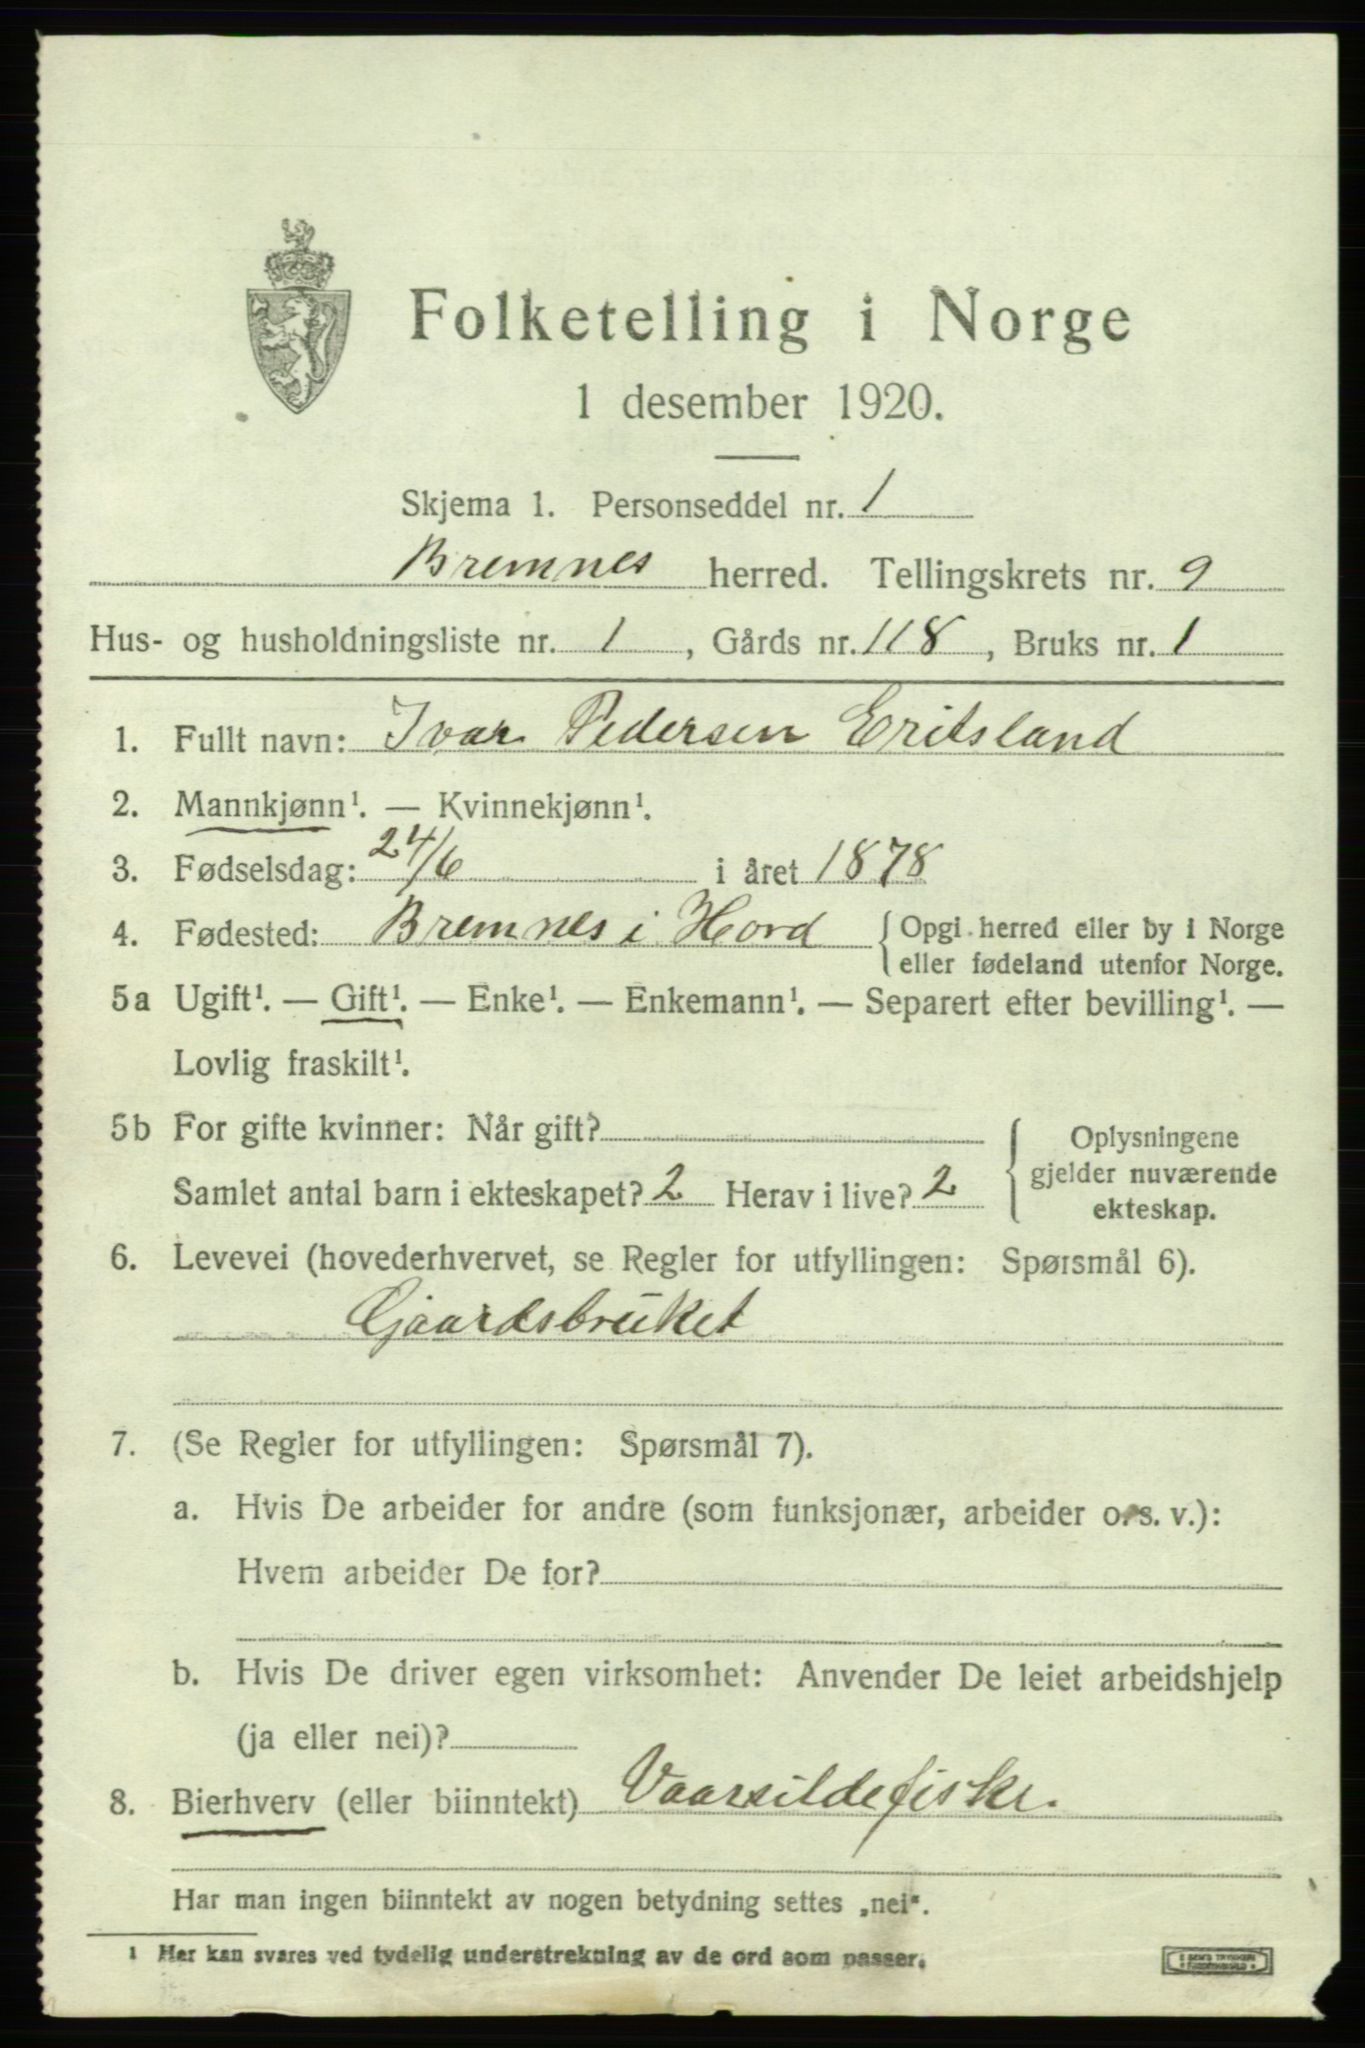 Folketelling i Norge
1 desember 1920.
Skjema 1. Personseddel nr. 1
Bremnes herred. Tellingskrets nr. 9
Hus- og husholdningsliste nr. 1, Gårds nr. 118, Bruks nr. 1
1. Fullt navn: Ivar Pedersen Eritsland
2. Mannkjønn¹. — Kvinnekjønn¹.
3. Fødselsdag: 24/6 i året 1878
4. Fødested: Bremnes i Hord { Opgi herred eller by i Norge
eller fødeland utenfor Norge.
5a Ugift¹. — Gift¹. — Enke¹. — Enkemann¹. — Separert efter bevilling¹. —
Lovlig fraskilt¹.
5b For gifte kvinner: Når gift?
Samlet antal barn i ekteskapet? 2 Herav i live? 2
{ Oplysningene
gjelder nuværende
ekteskap.
6. Levevei (hovederhvervet, se Regler for utfyllingen: Spørsmål 6).
Gjaardsbruket
7. (Se Regler for utfyllingen: Spørsmål 7).
a. Hvis De arbeider for andre (som funksjonær, arbeider o. s. v.):
Hvem arbeider De for?
b. Hvis De driver egen virksomhet: Anvender De leiet arbeidshjelp
(ja eller nei)?
8. Bierhverv (eller biinntekt) Vaarsildefiske.
Har man ingen biinntekt av nogen betydning settes „nei“.
¹ Her kan svares ved tydelig understrekning av de ord som passer.